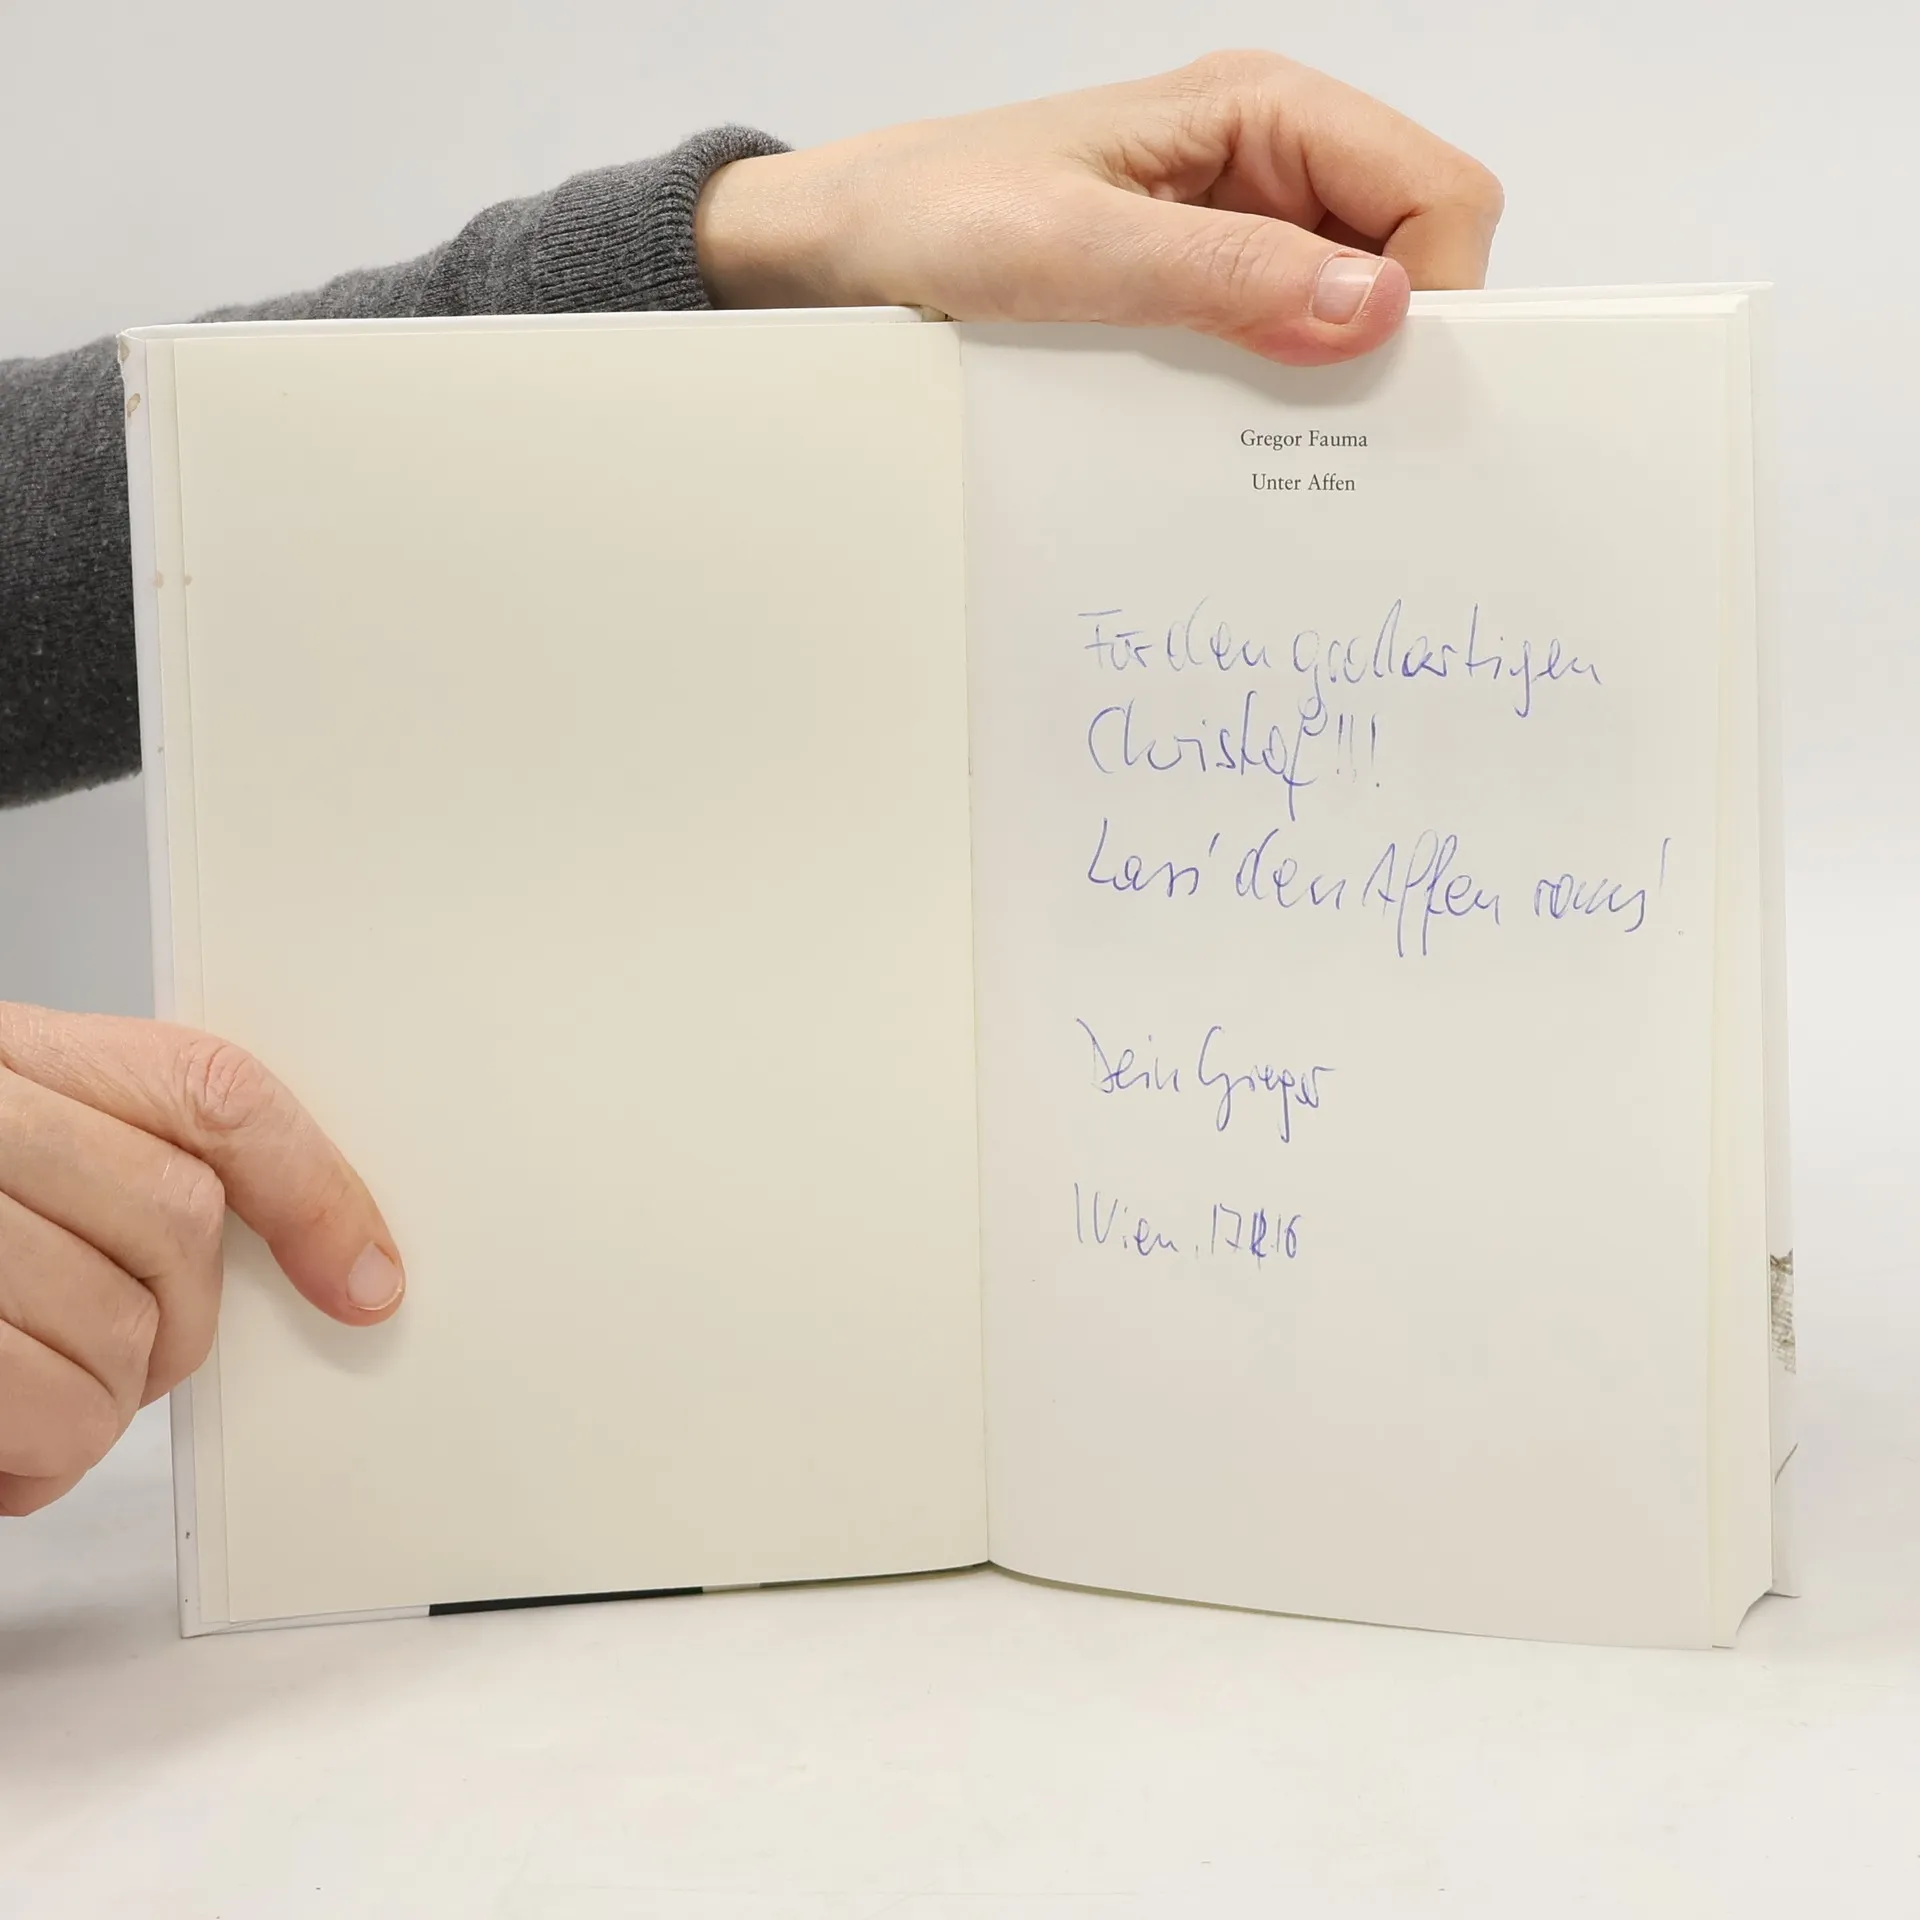 Gregor Fauma
Unter Affen
Für den großartigen
Christof!!!
Lass' den Affen raus!
Dein Gregor
Wien,